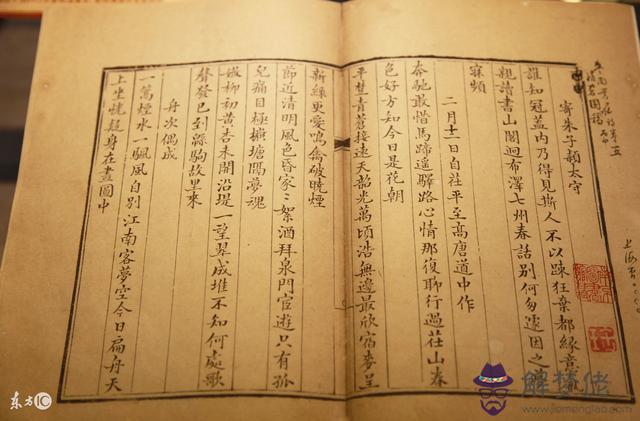 寄朱子穎太守
誰知冠蓋内乃得見斯人不以踈狂棄都緣意
親讀書山閣迥布澤七州春話别何匆遽因之
寐頻
二月十二日自茌平至高唐道中作
奔馳敢惜馬蹄遥驛路心情那復聊行過茌山春
色好方知今日是花朝
平楚青蒼接遠天韶光萬頃浩無邊最欣宿麥呈
新綠更愛鳴禽破曉煙
節近清明風色昏家〻絮酒拜泉門官遊只有孤
兒痛目極橫塘隔夢魂
嫩柳初黄杏未開沿堤一望翠成堆不知何處歌
聲發已到緜駒故里來
舟次偶成
一篙煙水一颿風自别江南客夢空今日扁舟天
上坐恍疑身在畫圖中
东方IC
解梦佬
www.jiemenglao.com